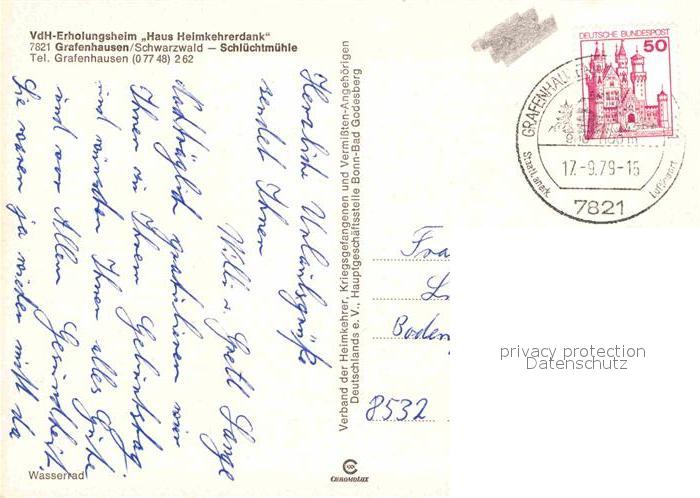 VdH-Erholungsheim „Haus Heimkehrerdank“
7821 Grafenhausen/Schwarzwald — Schlüchtmühle
Tel. Grafenhausen (0 77 48) 2 62
Herzliche Urlaubsgrüße
sendet Ihnen
Willi u. Gretl Lange
Nachträglich gratulieren wir
Ihnen zu Ihrem Geburtstag
und wünschen Ihnen alles Gute
und vor Allem Gesundheit.
Sie waren ja wieder nicht da
Wasserrad
Verband der Heimkehrer, Kriegsgefangenen und Vermißten-Angehörigen
Deutschlands e. V., Hauptgeschäftsstelle Bonn-Bad Godesberg
CHROMOLUX
DEUTSCHE BUNDESPOST
50
GRAFENHAU
17.-9.79-15
Staatl. anerk.
Luftkurort
7821
Fra
Boden
8532
privacy protection
Datenschutz